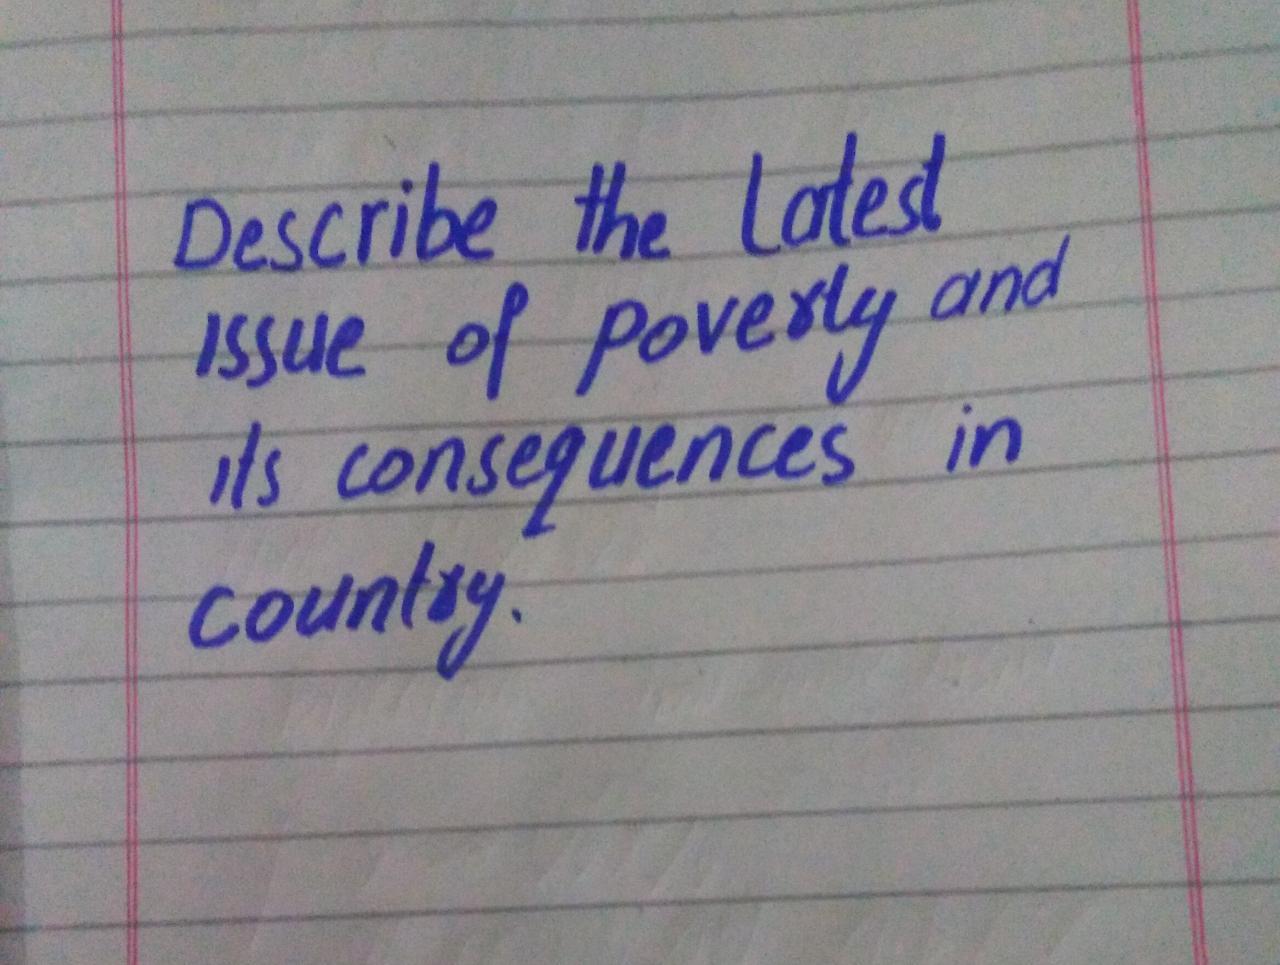 Describe the latest
issue of poverty and
its consequences in
country.